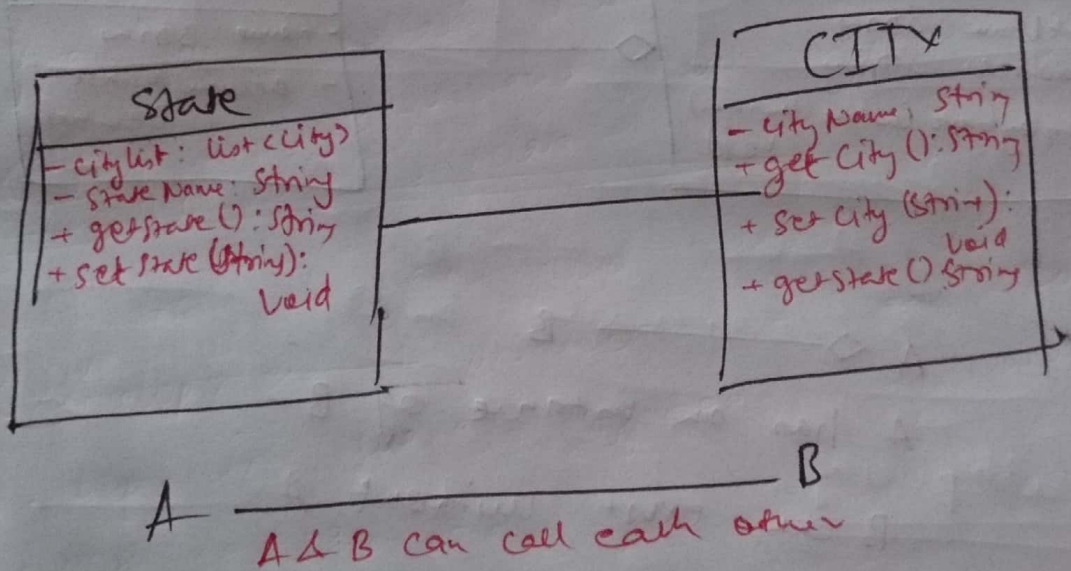 State
- City list : List <City>
- State Name: String
+ getstate () : String
+ set state (String):
void
CITY
- City Name, String
+ get City () : String
+ set City (String):
void
+ getstate () String
A B
A & B can call each other